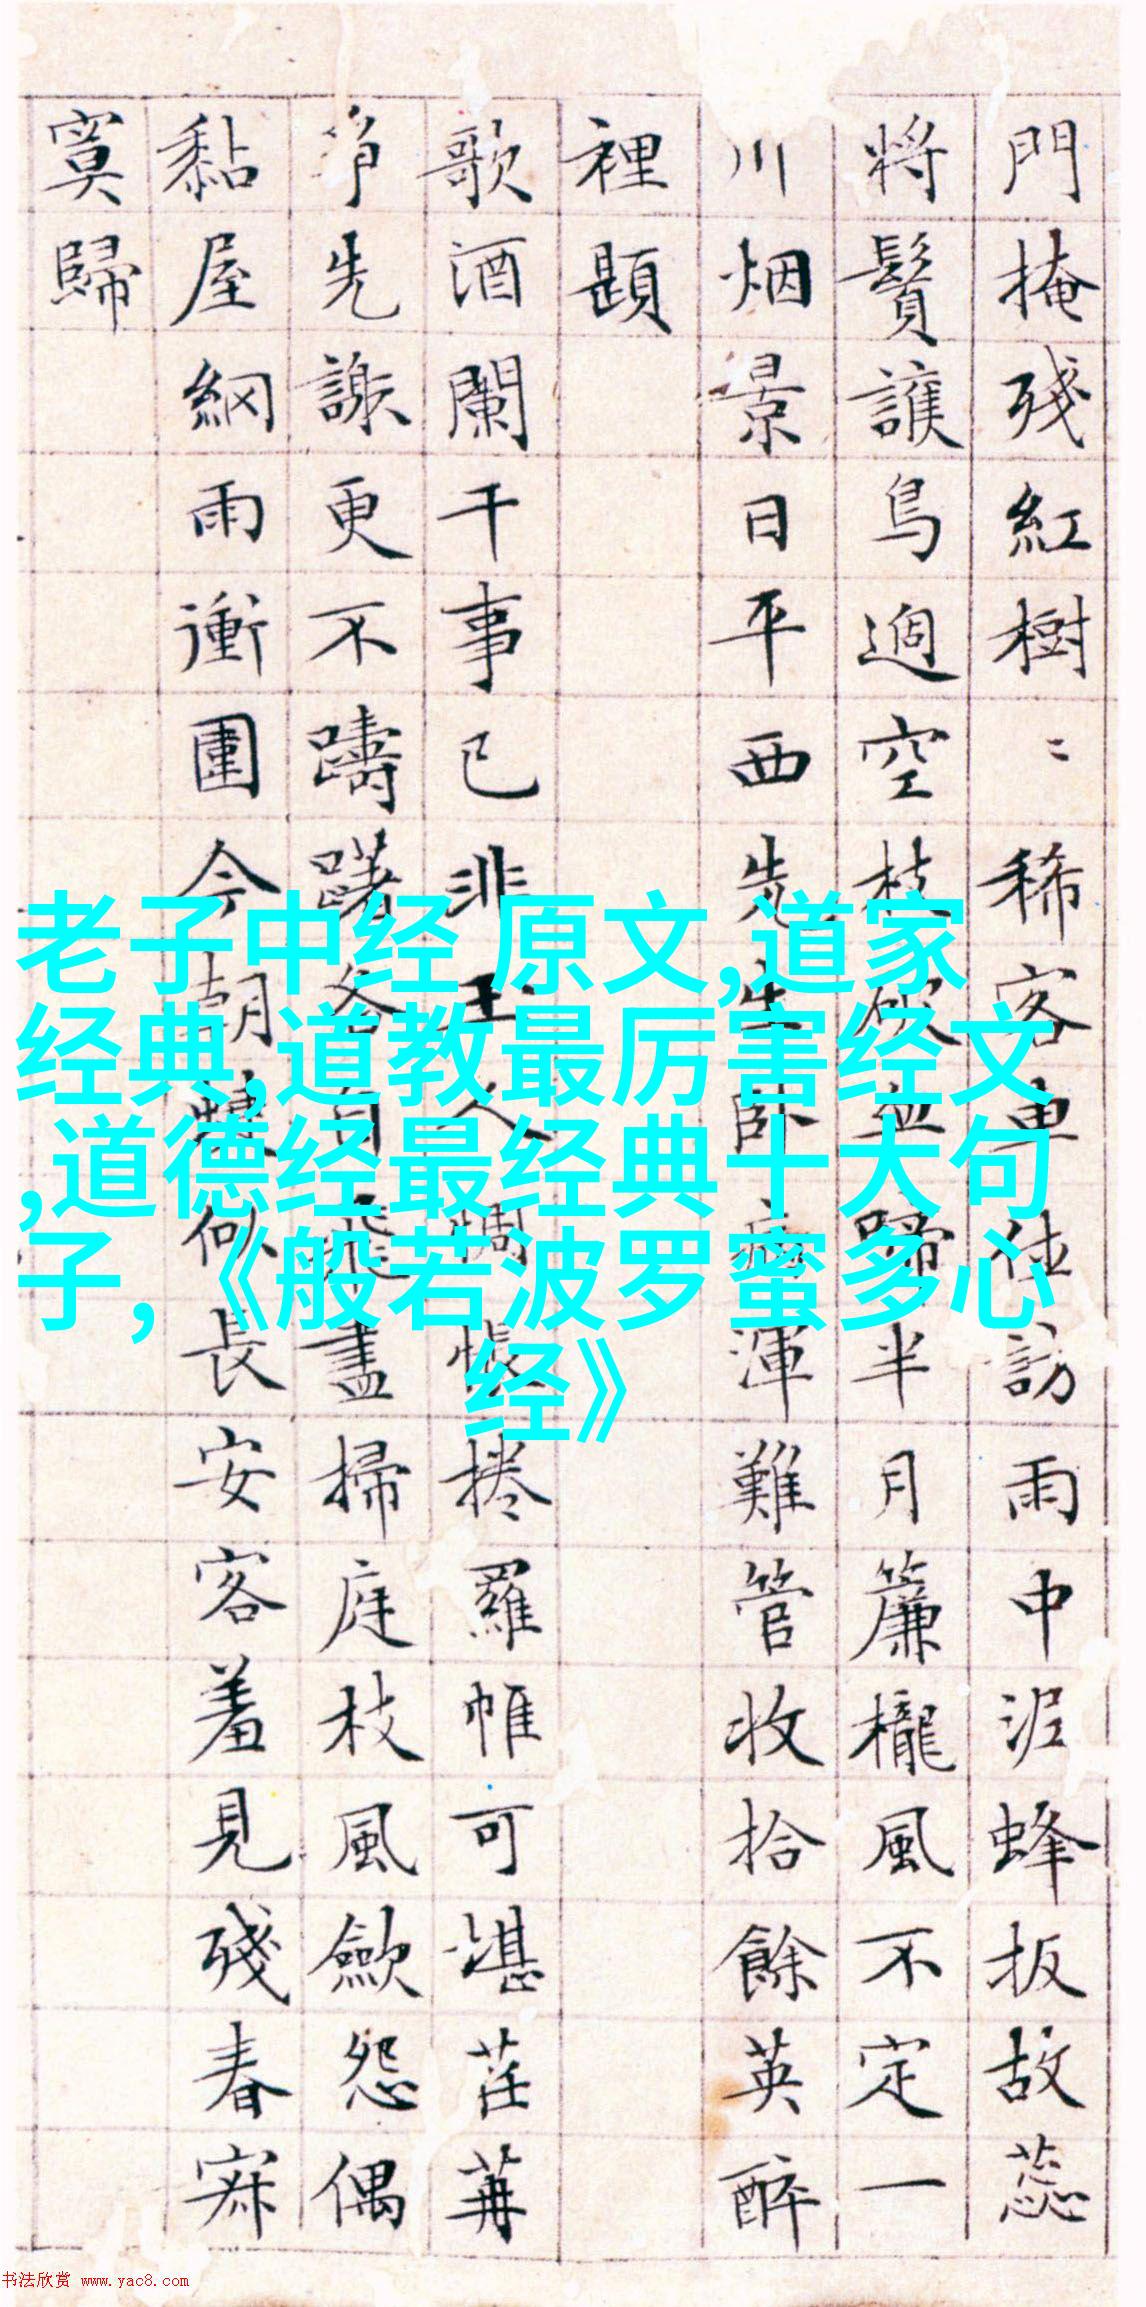 門掩殘紅樹〻稀客車佳訪雨中泥蜂扳故蕊
將鬢護鳥過空枝血啼半月簾櫳風不定一
川烟景日平西先生臥病渾難管收拾餘英醉
裡題
歌酒闌干事已非玉人惆悵捲羅帷可堪荏苒
爭先謝更不躊躇各自飛盡掃庭枝風歛怨偶
黏屋網雨衝圍今朝似長安客羞見殘春寂
寞歸
老子中经 原文,道家
经典,道教最厉害经文
,道德经最经典十大句
子,《般若波罗蜜多心
经》
书法欣赏 www.yac8.com